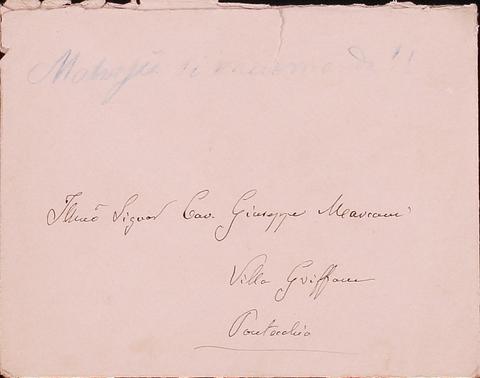 si raccomanda!!
Illmo Signor Cav. Giuseppe Marconi
Villa Griffone
Pontecchio